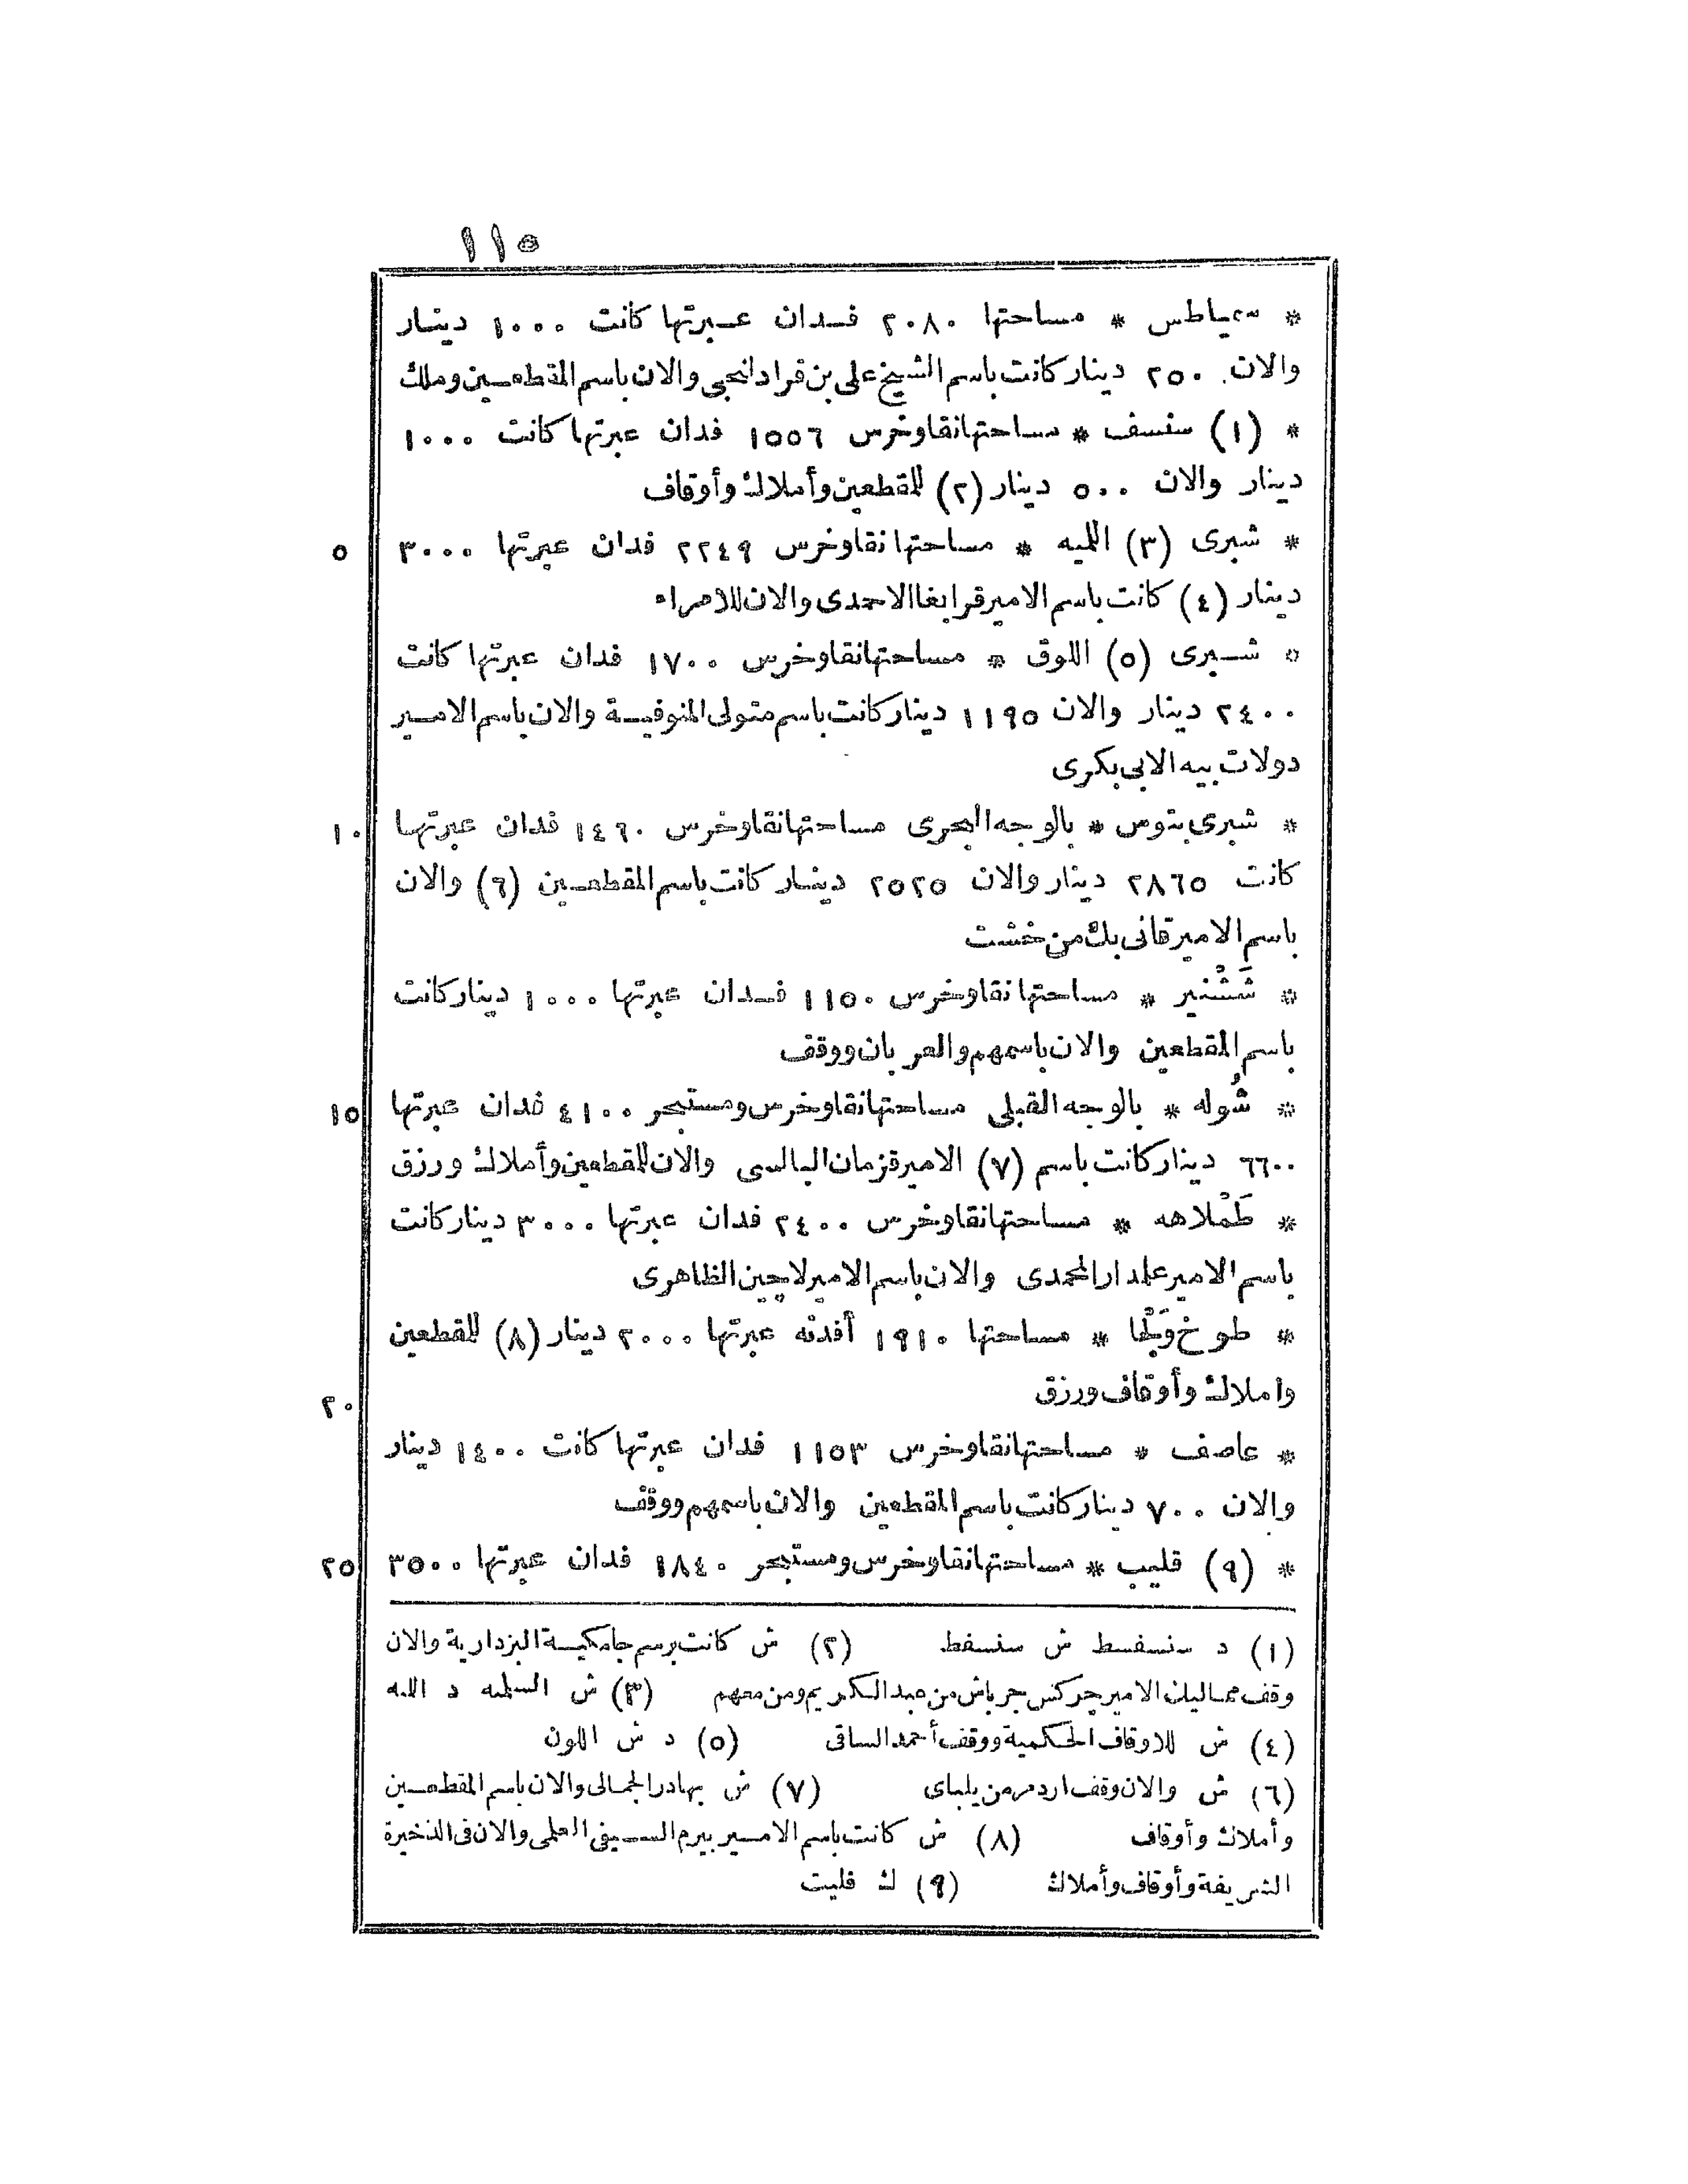 ١١٥
* سمياطس * مساحتها ٢٠٨٠ فدان عبرتها كانت ١٠٠٠ دينار
والان ٢٥٠ دينار كانت باسم الشيخ على بن قراد انجبى والان باسم المقطعين وملك
* (١) سنسف * مساحتها نقا وخرس ١٥٥٦ فدان عبرتها كانت ١٠٠٠
دينار والان ٥٠٠ دينار (٢) للمقطعين وأملاك وأوقاف
* شبرى (٣) الليه * مساحتها نقا وخرس ٢٢٤٩ فدان عبرتها ٣٠٠٠ ٥
دينار (٤) كانت باسم الامير قرابغا الاحمدى والان للامراء
* شبرى (٥) اللوق * مساحتها نقا وخرس ١٧٠٠ فدان عبرتها كانت
٢٤٠٠ دينار والان ١١٩٥ دينار كانت باسم متولى المنوفية والان باسم الامير
دولات بيه الابى بكرى
* شبرى بتوس * بالوجه البحرى مساحتها نقا وخرس ١٤٦٠ فدان عبرتها ١٠
كانت ٢٨٦٥ دينار والان ٢٥٢٥ دينار كانت باسم المقطعين (٦) والان
باسم الامير قانى بك من خشت
* شَشْنير * مساحتها نقا وخرس ١١٥٠ فدان عبرتها ١٠٠٠ دينار كانت
باسم المقطعين والان باسمهم والعربان ووقف
* شُوله * بالوجه القبلى مساحتها نقا وخرس ومستبحر ٤١٠٠ فدان عبرتها ١٥
٦٦٠٠ دينار كانت باسم (٧) الامير قزمان البالسى والان للمقطعين وأملاك ورزق
* طَمْلاهه * مساحتها نقا وخرس ٢٤٠٠ فدان عبرتها ٣٠٠٠ دينار كانت
باسم الامير علمدار المحمدى والان باسم الامير لاجين الظاهرى
* طوخ * مساحتها ١٩١٠ أفدنه عبرتها ٢٠٠٠ دينار (٨) للمقطعين
واملاك وأوقاف ورزق ٢٠
* عاصف * مساحتها نقا وخرس ١١٥٣ فدان عبرتها كانت ١٤٠٠ دينار
والان ٧٠٠ دينار كانت باسم المقطعين والان باسمهم ووقف
* (٩) قليب * مساحتها نقا وخرس ومستبحر ١٨٤٠ فدان عبرتها ٣٥٠٠ ٢٥
(١) د سنسفسط ش سنسفط (٢) ش كانت برسم جامكية البزدارية والان
وقف مماليك الامير جركس جرباش من عبد الكريم ومن معهم (٣) ش السلمه د الله
(٤) ش للاوقاف الحكمية ووقف أحمد الساقى (٥) د ش اللون
(٦) ش والان وقف اردمر من يلباى (٧) ش بهادر الجمالى والان باسم المقطعين
وأملاك وأوقاف (٨) ش كانت باسم الامير بيرم السيفى العلمى والان فى الذخيرة
الشريفة وأوقاف وأملاك (٩) ك قليت